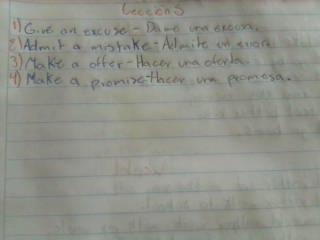 Leccion 3
1) Give an excuse - Dame una excusa.
2) Admit a mistake - Admite un error
3) Make a offer - Hacer una oferta.
4) Make a promise - Hacer una promesa.